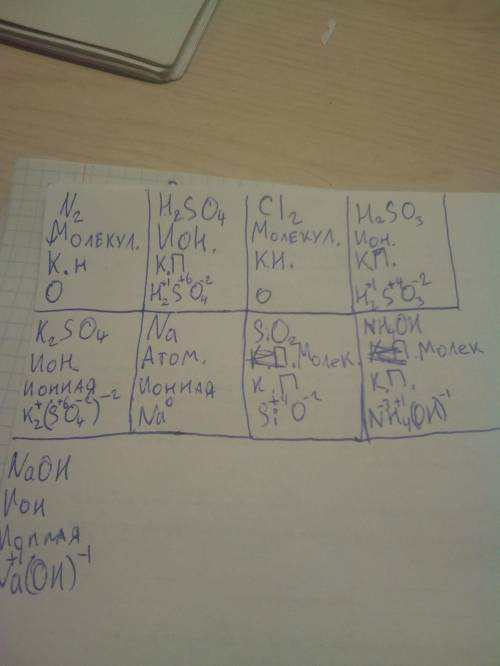 N₂
Молекул.
К.Н
O
H₂SO₄
Ион.
К.П
H₂⁺¹S⁺⁶O₄⁻²
Cl₂
Молекул.
КН.
O
H₂SO₃
Ион.
К.П.
H₂⁺¹S⁺⁴O₃⁻²
K₂SO₄
ИОН
ИОННАЯ
K₂⁺(S⁺⁶O₄⁻²)⁻²
Na
Атом.
Ионная
Na⁰
SiO₂
Молек.
К.П
Si⁺⁴O⁻²
NH₄OH
Молек
К.П.
N⁻³H₄⁺¹(OH)⁻¹
NaOH
Ион
Na⁺(OH)⁻¹